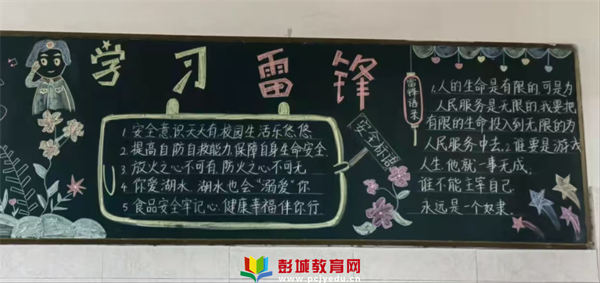 学习雷锋
1.安全意识天天有,校园生活乐悠悠
2.提高自防自救能力,保障自身生命安全.
3.放火之心不可有,防火之心不可无
4.你爱湖水,湖水也会“溺爱”你
5.食品安全牢记心,健康幸福伴你行
安全标语
雷锋语录
1.人的生命是有限的,可是为
人民服务是无限的,我要把
有限的生命投入到无限的为
人民服务中去.2.谁要是游戏
人生,他就一事无成,
谁不能主宰自己,
永远是一个奴隶.
彭城教育网
www.pcjyedu.cn